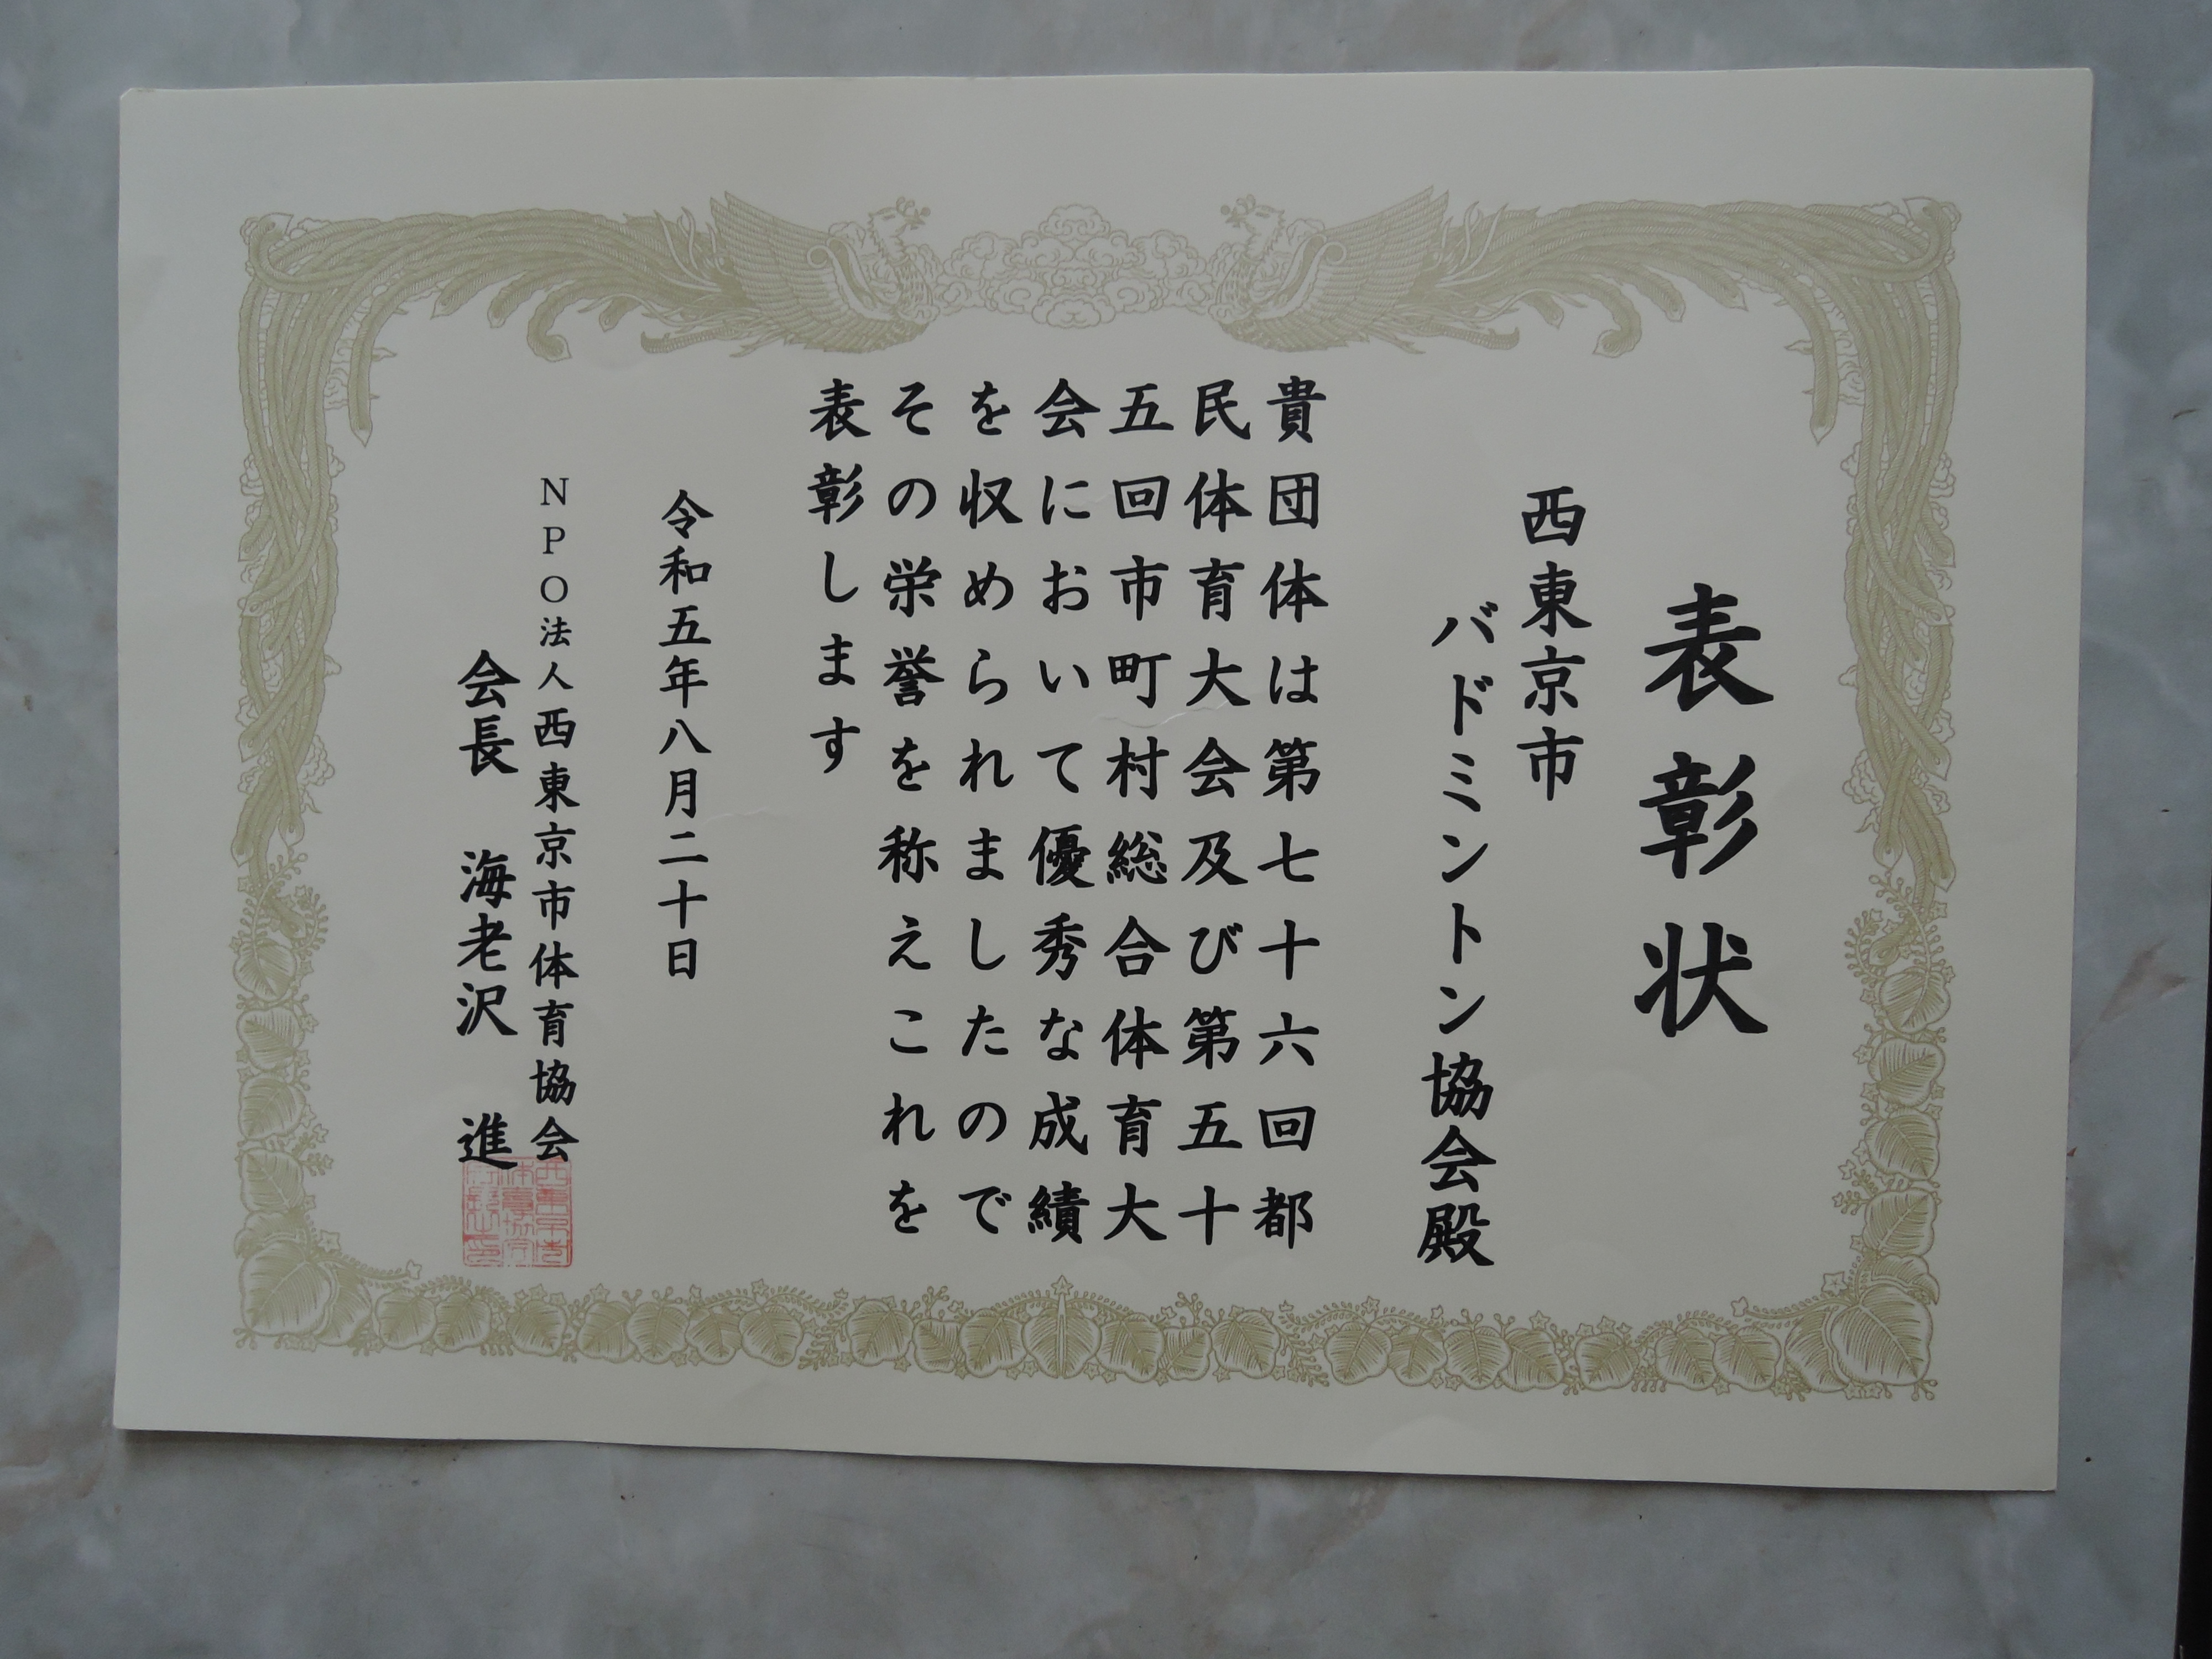 表彰状
西東京市
バドミントン協会殿
貴団体は第七十六回都
民体育大会及び第五十
五回市町村総合体育大
会において優秀な成績
を収められましたので
その栄誉を称えこれを
表彰します
令和五年八月二十日
NPO法人西東京市体育協会
会長 海老沢 進